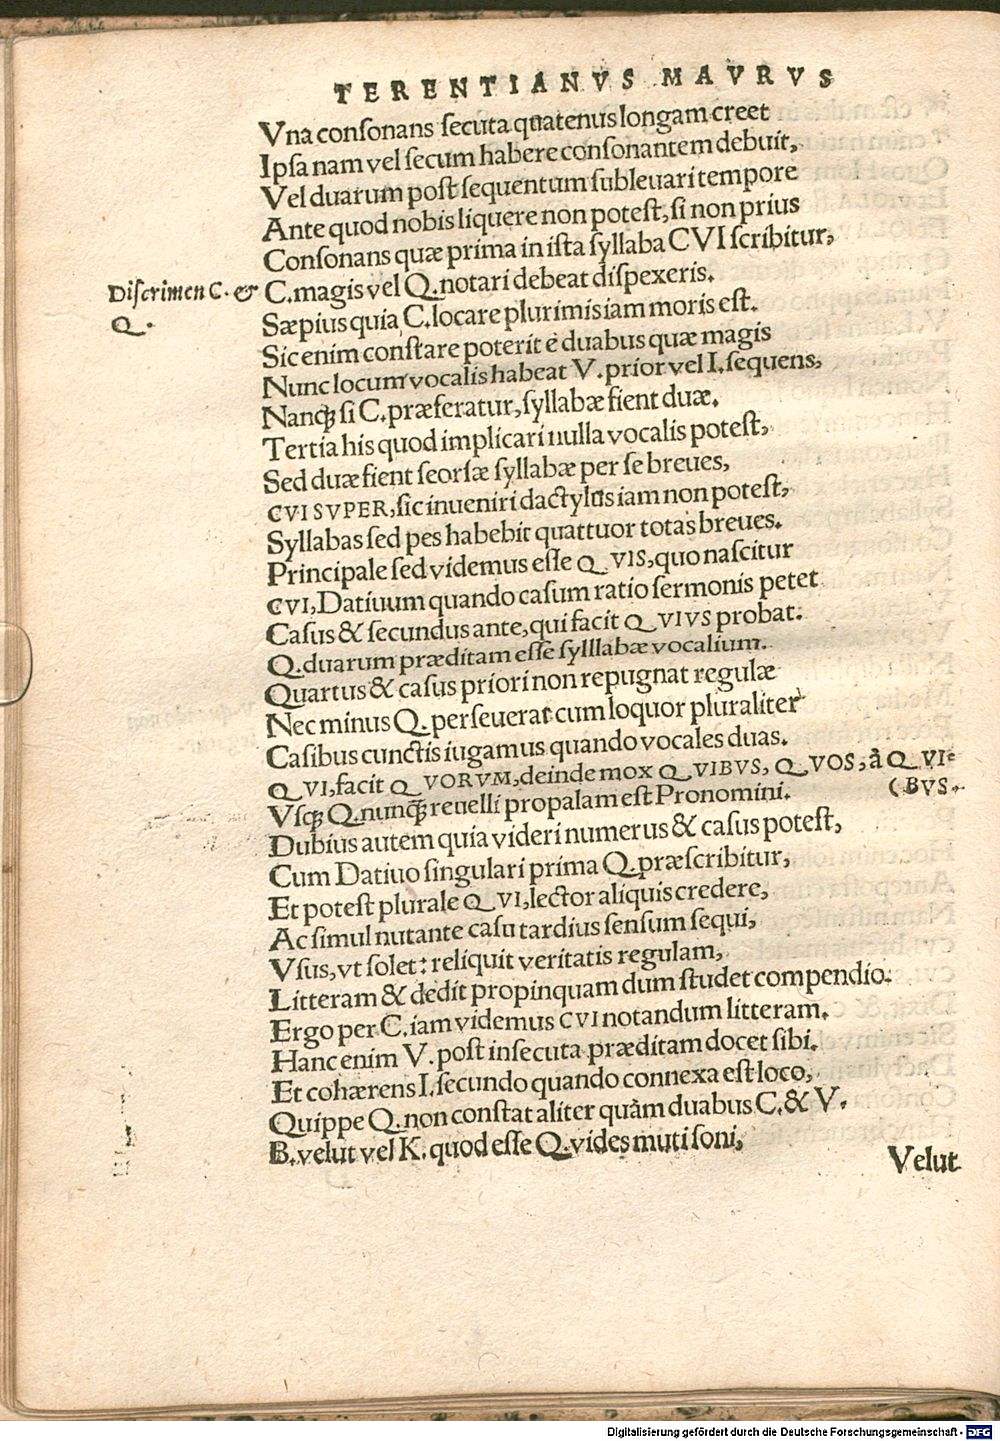 TERENTIANVS MAVRVS
Vna conſonans ſecuta quatenus longam creet
Ipſa nam vel ſecum habere conſonantem debuit,
Vel duarum poſt ſequentum ſubleuari tempore
Ante quod nobis liquere non poteſt, ſi non prius
Conſonans quæ prima in iſta ſyllaba CVI ſcribitur,
Diſcrimen C. &
Q.
C. magis vel Q. notari debeat diſpexeris.
Sæpius quia C. locare plurimis iam moris eſt.
Sic enim conſtare poterit è duabus quæ magis
Nunc locum vocalis habeat V. prior vel I. ſequens,
Nanq̃ ſi C. præferatur, ſyllabæ fient duæ.
Tertia his quod implicari nulla vocalis poteſt,
Sed duæ fient ſeorſæ ſyllabæ per ſe breues,
CVI SVPER, ſic inueniri dactylus iam non poteſt,
Syllabas ſed pes habebit quattuor totas breues.
Principale ſed videmus eſſe QVIS, quo naſcitur
CVI, Datiuum quando caſum ratio ſermonis petet
Caſus & ſecundus ante, qui facit QVIVS probat.
Q. duarum præditam eſſe ſylllabæ vocalium.
Quartus & caſus priori non repugnat regulæ
Nec minus Q. perſeuerat cum loquor pluraliter
Caſibus cunctis iugamus quando vocales duas.
QVI, facit QVORVM, deinde mox QVIBVS, QVOS, à QVI-
(BVS.
Vſq; Q. nunq̃ reuelli propalam eſt Pronomini.
Dubius autem quia videri numerus & caſus poteſt,
Cum Datiuo ſingulari prima Q. præſcribitur,
Et poteſt plurale QVI, lector aliquis credere,
Ac ſimul nutante caſu tardius ſenſum ſequi,
Vſus, vt ſolet: reliquit veritatis regulam,
Litteram & dedit propinquam dum ſtudet compendio.
Ergo per C. iam videmus CVI notandum litteram.
Hanc enim V. poſt inſecuta præditam docet ſibi.
Et cohærens I. ſecundo quando connexa eſt loco,
Quippe Q. non conſtat aliter quàm duabus C. & V.
B. velut vel K. quod eſſe Q. vides muti ſoni,
Velut
Digitalisierung gefördert durch die Deutsche Forschungsgemeinschaft - DFG